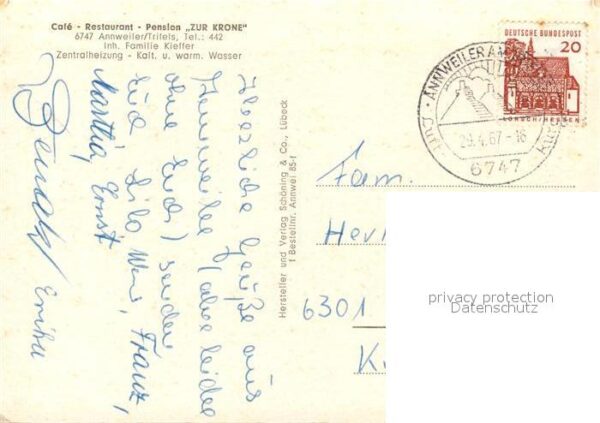 Café - Restaurant - Pension „ZUR KRONE"
6747 Annweiler/Trifels, Tel.: 442
Inh. Familie Kieffer
Zentralheizung - Kalt. u. warm. Wasser
Herzliche Grüße aus
Annweiler (aber leider
ohne Euch) senden
Lilo
Franz,
Martha, Ernst
Erika
Hersteller und Verlag Schöning & Co., Lübeck
Bestellnr. Annwei 85-f
DEUTSCHE BUNDESPOST
20
LORSCH/HESSEN
ANNWEILER AM
29.4.67-16
Luft
6747
Fam.
6301
privacy protection
Datenschutz